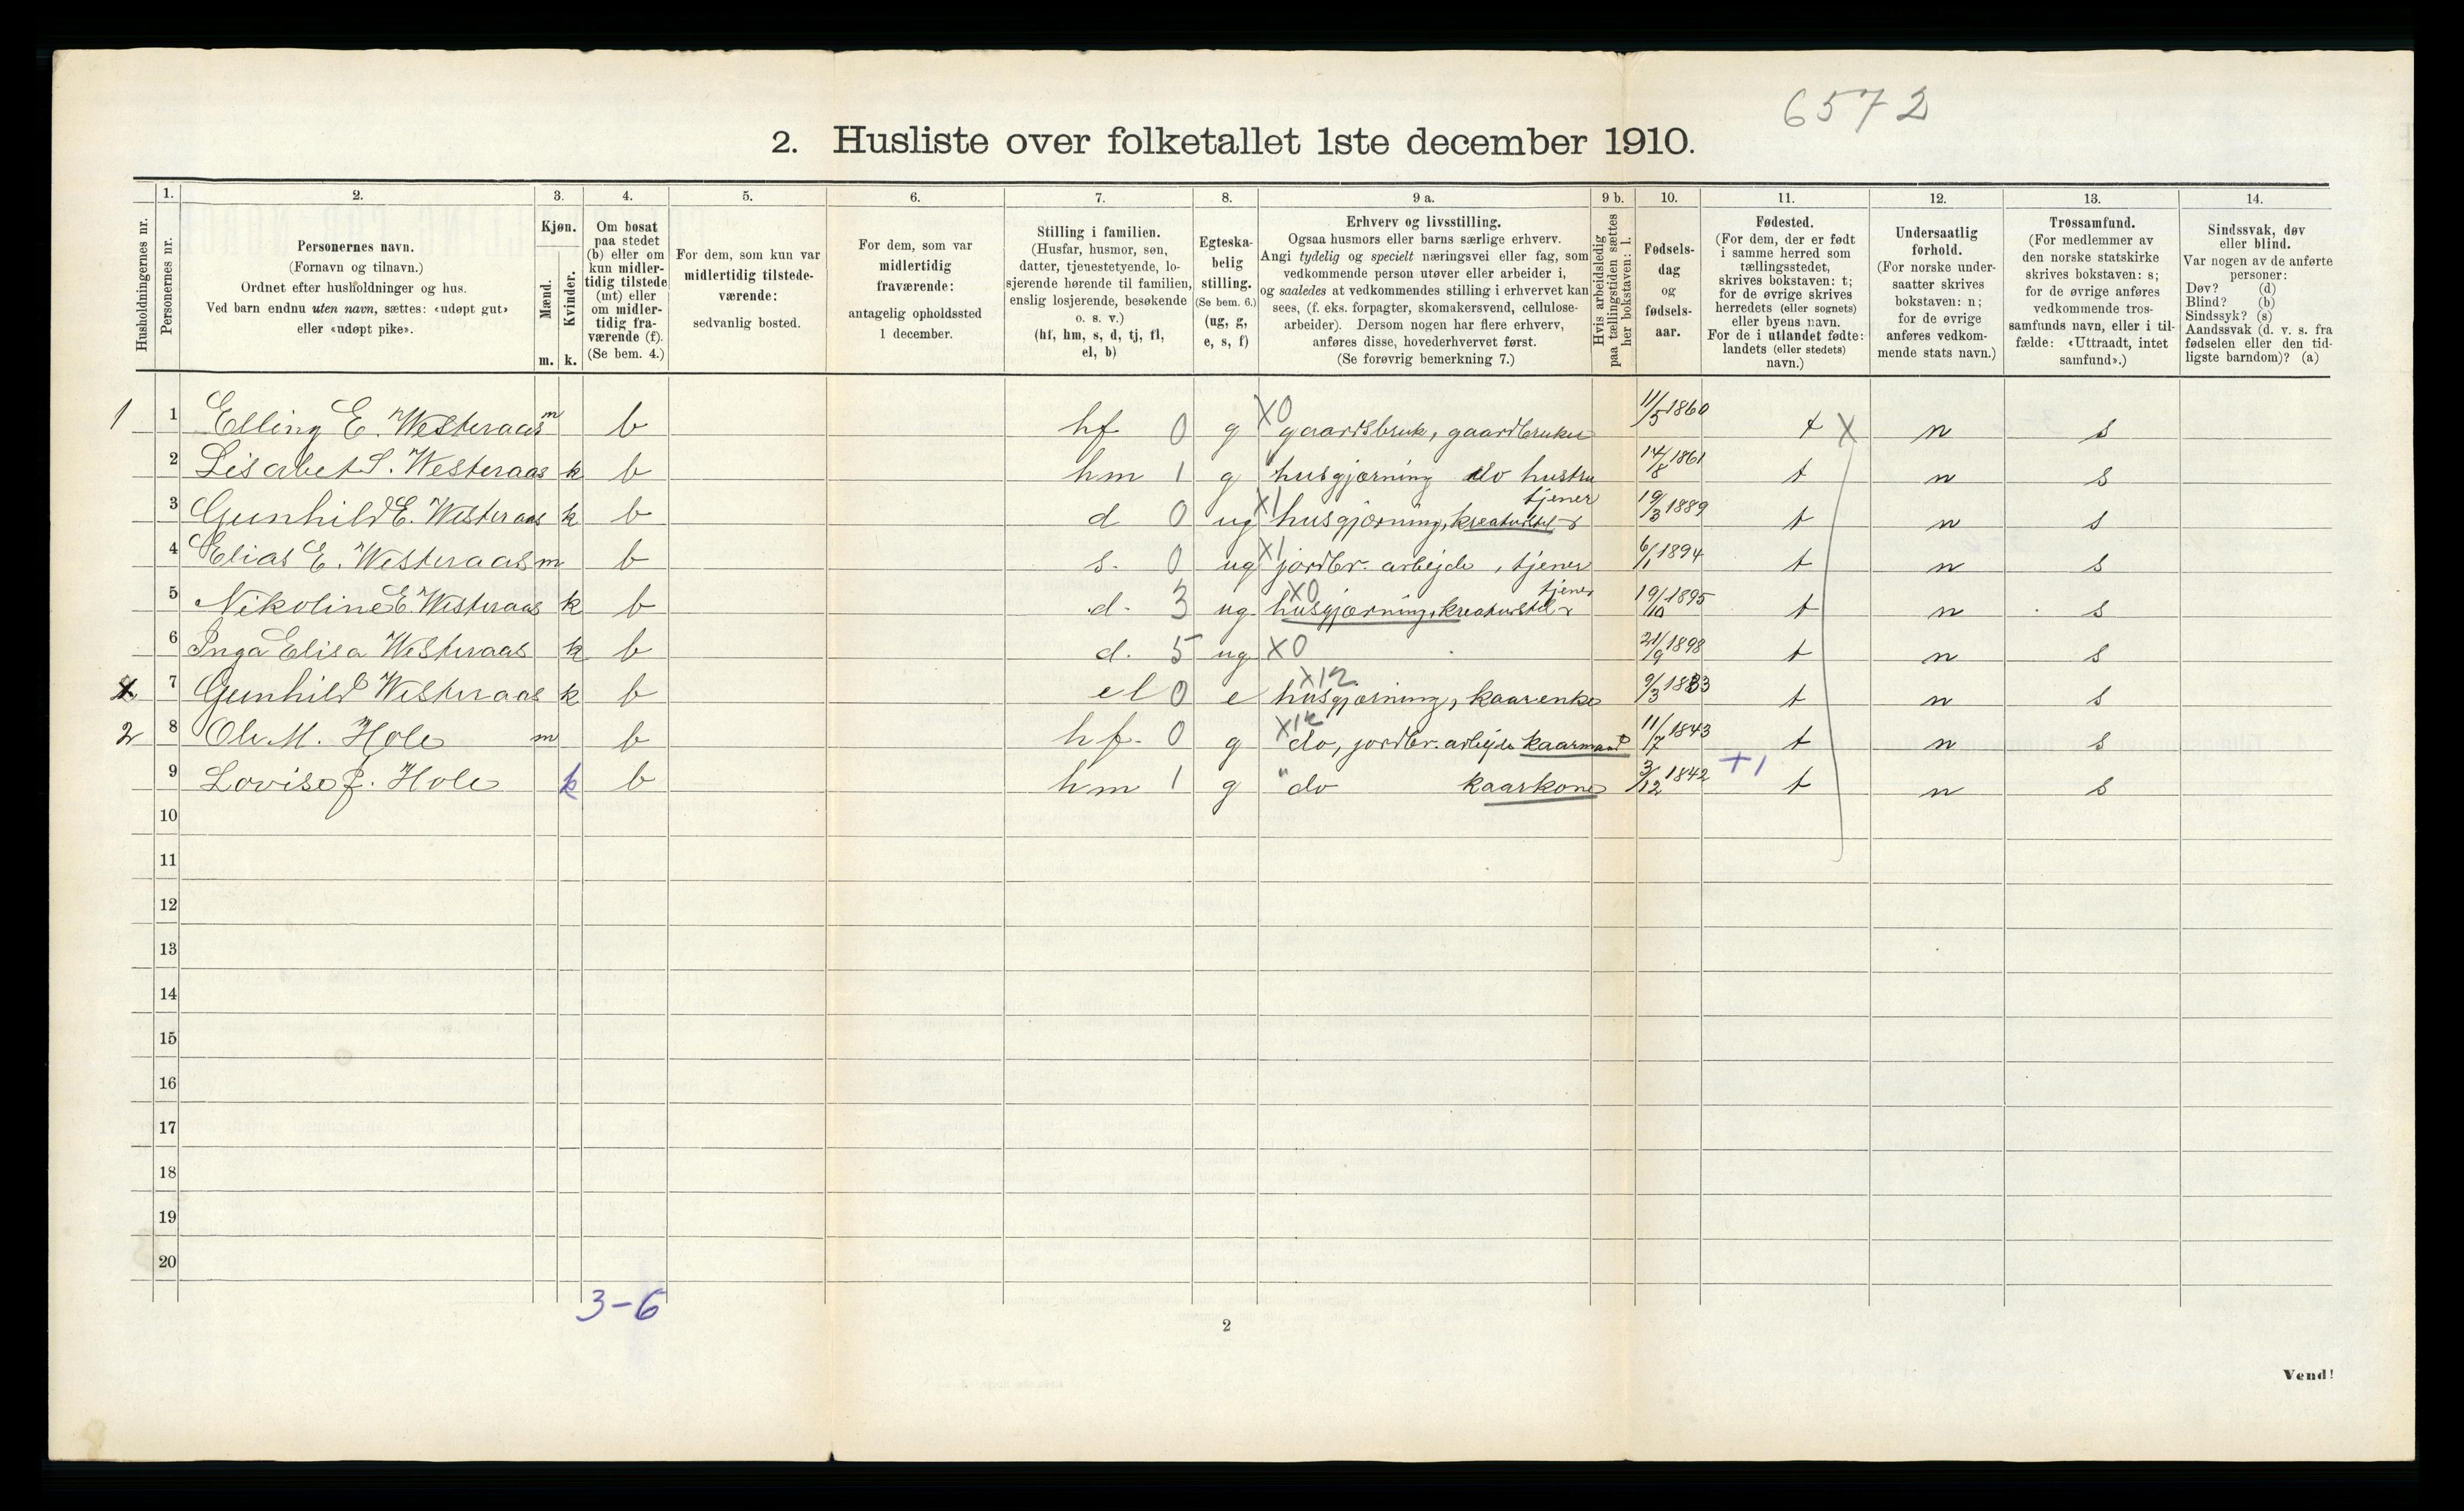 6572
2. Husliste over folketallet 1ste december 1910.
Husholdningernes nr.
1.
Personernes nr.
2.
Personernes navn.
(Fornavn og tilnavn.)
Ordnet efter husholdninger og hus.
Ved barn endnu uten navn, sættes: «udøpt gut»
eller «udøpt pike».
3.
Kjøn.
Mænd.
Kvinder.
m. k.
4.
Om bosat
paa stedet
(b) eller om
kun midler-
tidig tilstede
(mt) eller
om midler-
tidig fra-
værende (f).
(Se bem. 4.)
5.
For dem, som kun var
midlertidig tilstede-
værende:
sedvanlig bosted.
6.
For dem, som var
midlertidig
fraværende:
antagelig opholdssted
1 december.
7.
Stilling i familien.
(Husfar, husmor, søn,
datter, tjenestetyende, lo-
sjerende hørende til familien,
enslig losjerende, besøkende
o. s. v.)
(hf, hm, s, d, tj, fl,
el, b)
8.
Egteska-
belig
stilling.
(Se bem. 6.)
(ug, g,
e, s, f)
9 a.
Erhverv og livsstilling.
Ogsaa husmors eller barns særlige erhverv.
Angi tydelig og specielt næringsvei eller fag, som
vedkommende person utøver eller arbeider i,
og saaledes at vedkommendes stilling i erhvervet kan
sees, (f. eks. forpagter, skomakersvend, cellulose-
arbeider). Dersom nogen har flere erhverv,
anføres disse, hovederhvervet først.
(Se forøvrig bemerkning 7.)
9 b.
Hvis arbeidsledig
paa tællingstiden sættes
her bokstaven: l.
10.
Fødsels-
dag
og
fødsels-
aar.
11.
Fødested.
(For dem, der er født
i samme herred som
tællingsstedet,
skrives bokstaven: t;
for de øvrige skrives
herredets (eller sognets)
eller byens navn.
For de i utlandet fødte:
landets (eller stedets)
navn.)
12.
Undersaatlig
forhold.
(For norske under-
saatter skrives
bokstaven: n;
for de øvrige
anføres vedkom-
mende stats navn.)
13.
Trossamfund.
(For medlemmer av
den norske statskirke
skrives bokstaven: s;
for de øvrige anføres
vedkommende tros-
samfunds navn, eller i til-
fælde: «Uttraadt, intet
samfund».)
14.
Sindssvak, døv
eller blind.
Var nogen av de anførte
personer:
Døv? (d)
Blind? (b)
Sindssyk? (s)
Aandssvak (d. v. s. fra
fødselen eller den tid-
ligste barndom)? (a)
1 1 Elling E. Westeraas m b hf 0 g X0 gaardsbruk, gaardbruker 11/5 1860 t X n s
2 Lisabet S. Westeraas k b hm 1 g husgjørning do hustru 14/8 1861 t n s
3 Gunhild E. Westeraas k b d 0 ug X1 husgjørning, kreaturstel tjener 19/3 1889 t n s
4 Elias E. Westeraas m b s. 0 ug X1 jordbr. arbejde, tjener 6/1 1894 t n s
5 Nikoline E. Westeraas k b d. 3 ug X0 husgjørning, kreaturstel tjener 19/10 1895 t n s
6 Inga Elisa Westeraas k b d. 5 ug X0 21/9 1898 t n s
7 Gunhild Westeraas k b el 0 e X12 husgjørning, kaarenke 9/3 1833 t n s
2 8 Ole M. Hole m b hf. 0 g X12 do, jordbr. arbejde kaarmand 11/7 1843 t n s
9 Lovise J. Hole k b hm 1 g " do kaarkone 3/12 1842 +1 t n s
10
11
12
13
14
15
16
17
18
19
20
3-6
2
Vend!